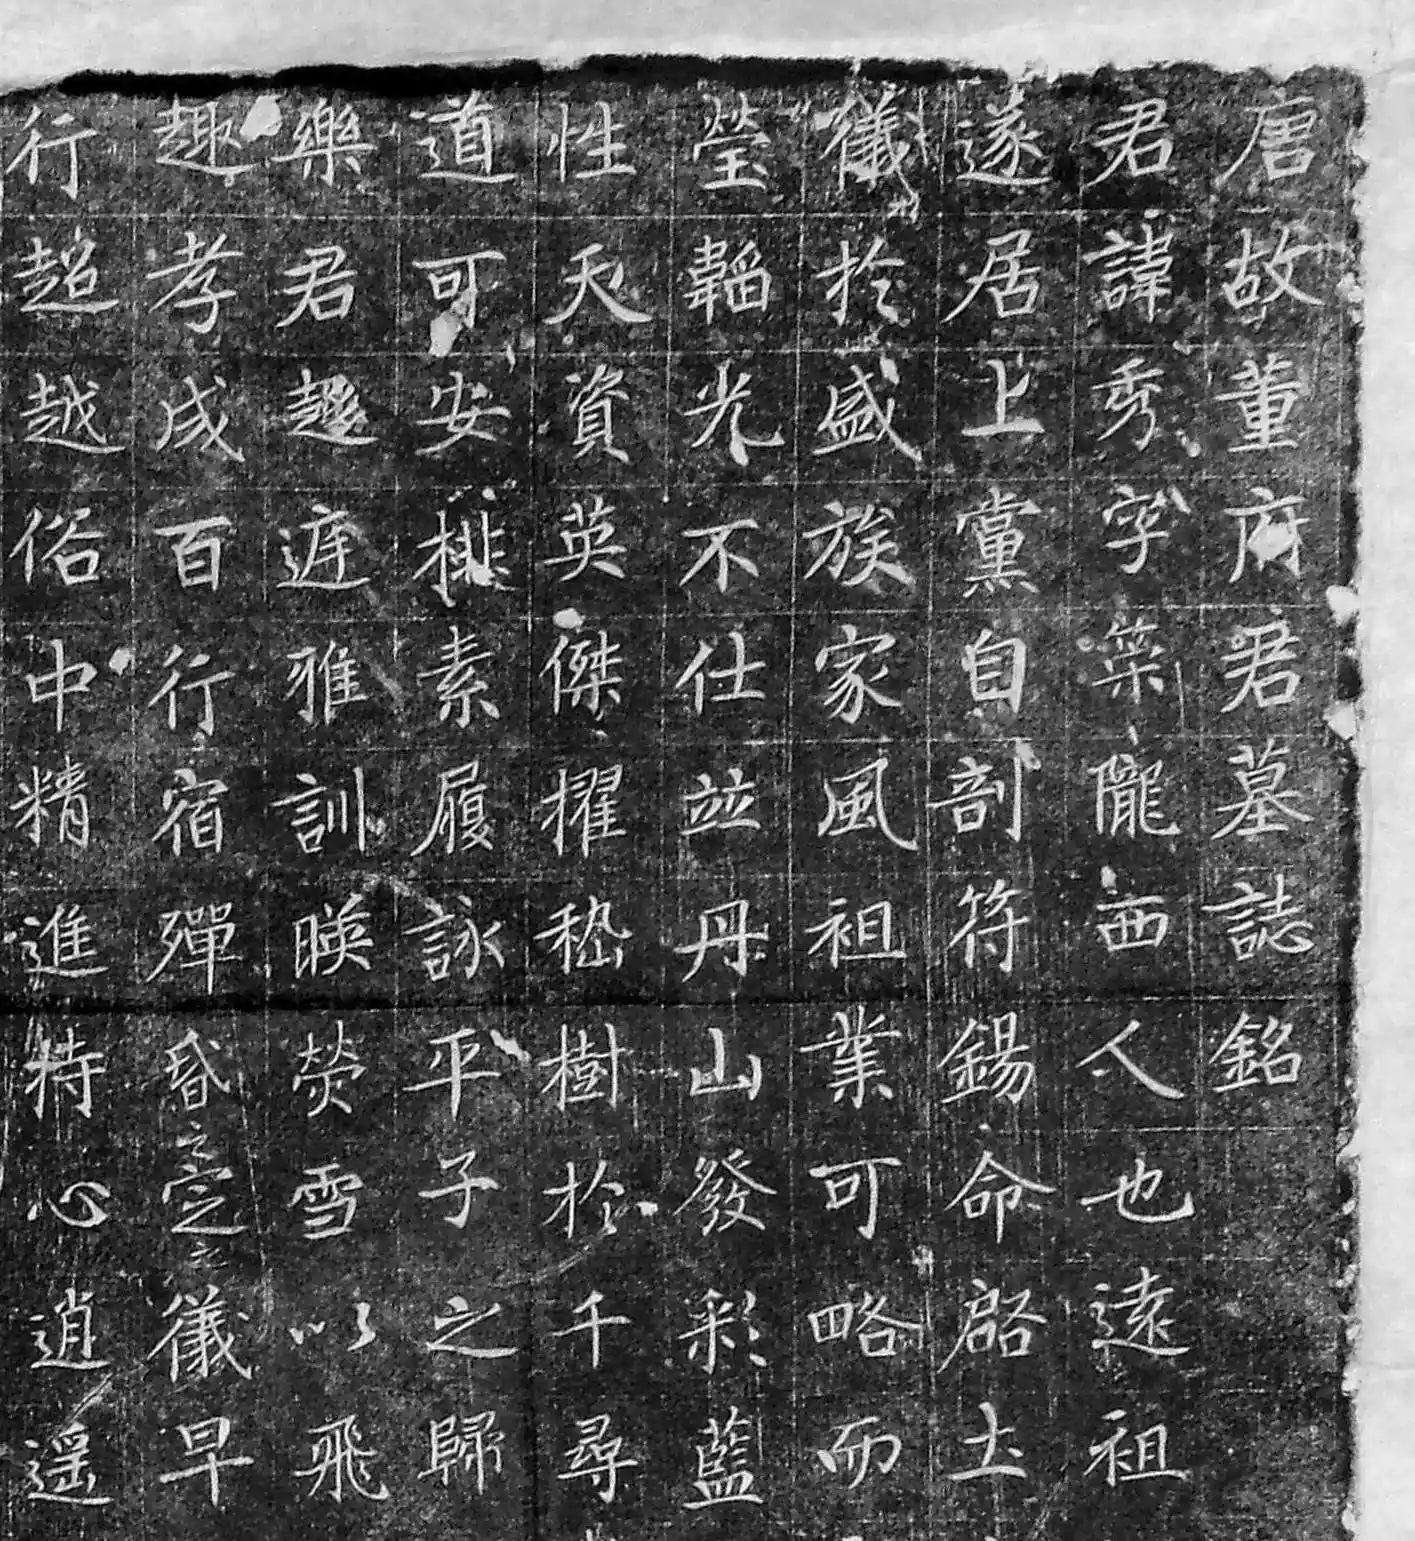 唐故董府君墓誌銘
君諱秀字榮隴西人也遠祖
遂居上黨自剖符錫命啓土
儀於盛族家風祖業可略而
瑩韜光不仕並丹山發彩藍
性天資英傑擢嵇樹於千尋
道可安排素履詠平子之歸
樂君趨庭雅訓暎熒雪以飛
趣孝成百行宿殫昏定儀早
行超越俗中精進特心逍遥